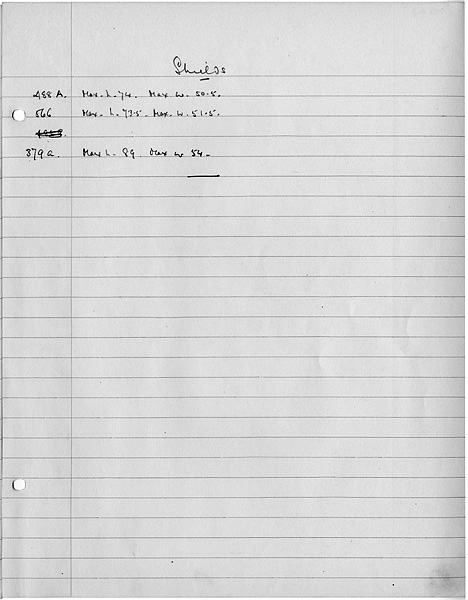 Shields
488 A. Max. L. 74. Max w. 50.5.
566 Max. L. 73.5. Max. w. 51.5.
379a. Max L. 89 Max w 54.